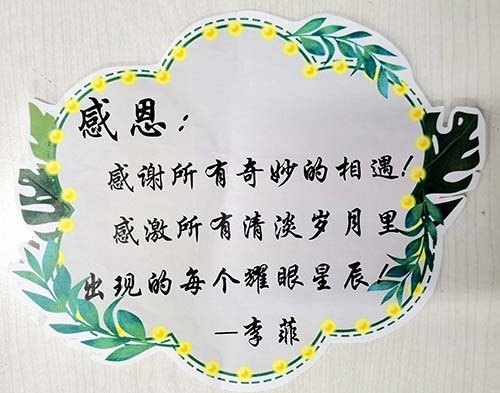 感恩：
感谢所有奇妙的相遇！
感激所有清淡岁月里
出现的每个耀眼星辰！
—李菲